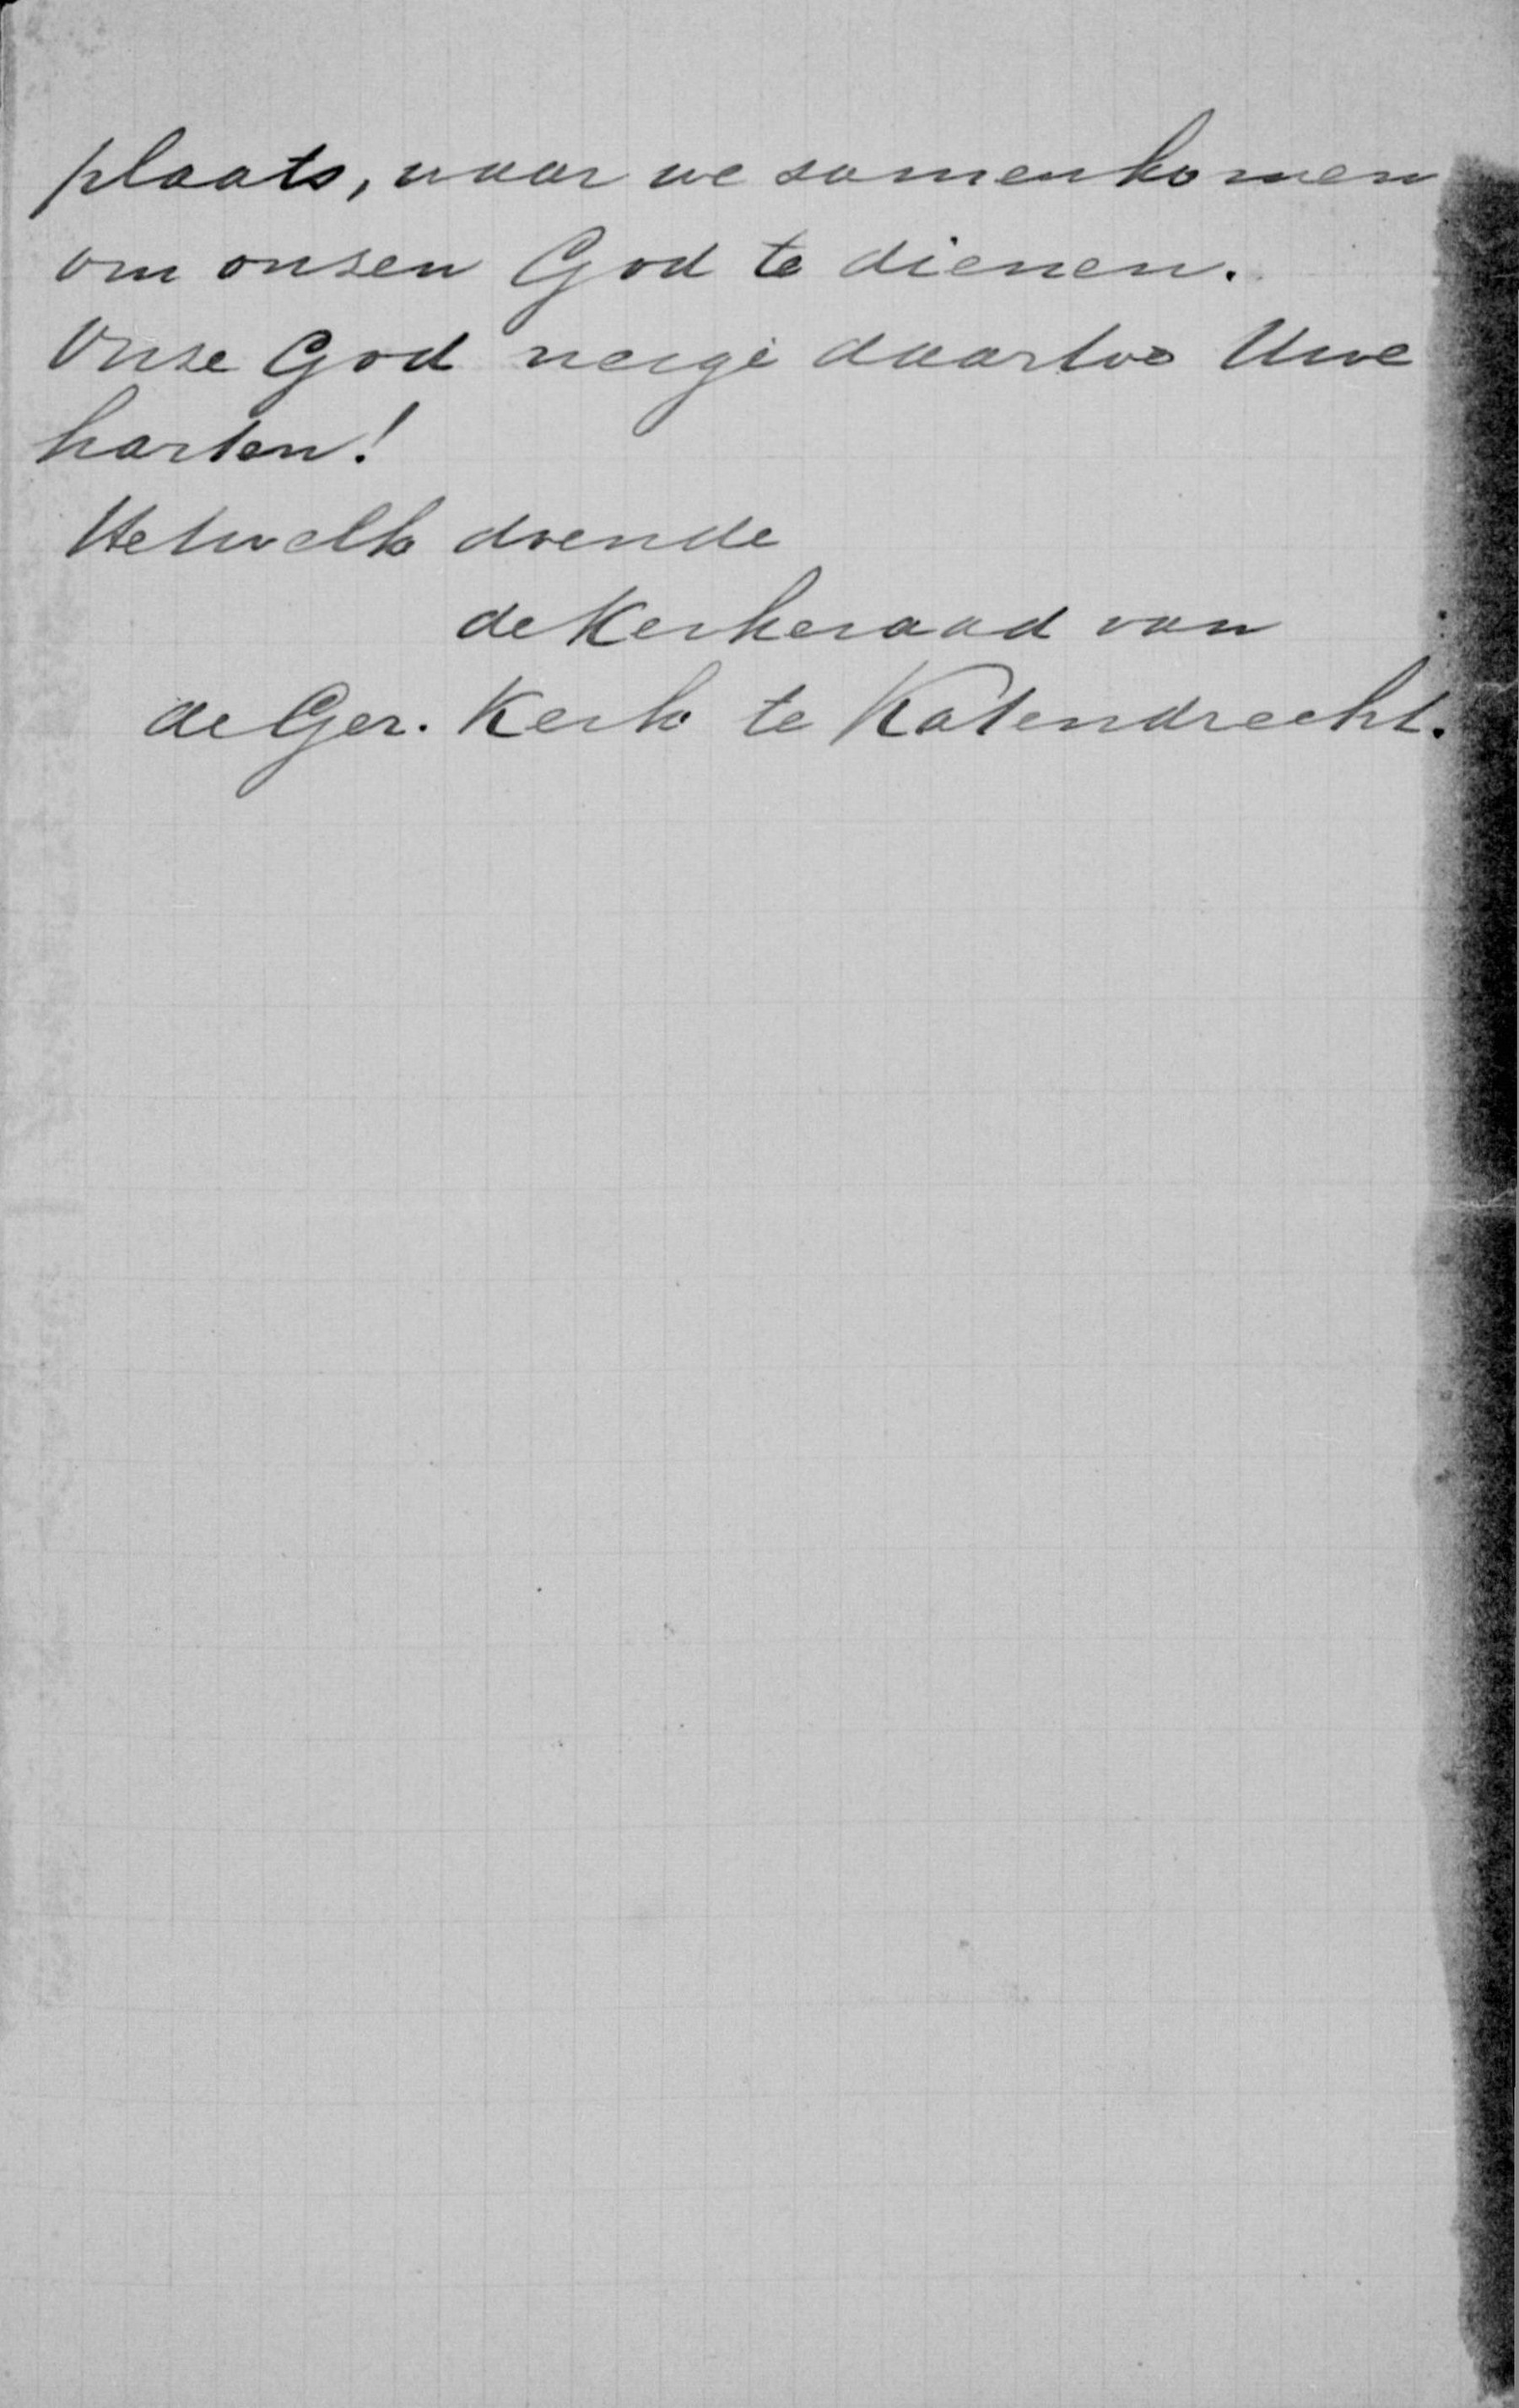 plaats, waar we samenkomen
om onzen God te dienen.
Onze God neige daartoe Uwe
harten!
Hetwelk doende
de Kerkeraad van
de Ger. Kerk te Katendrecht.